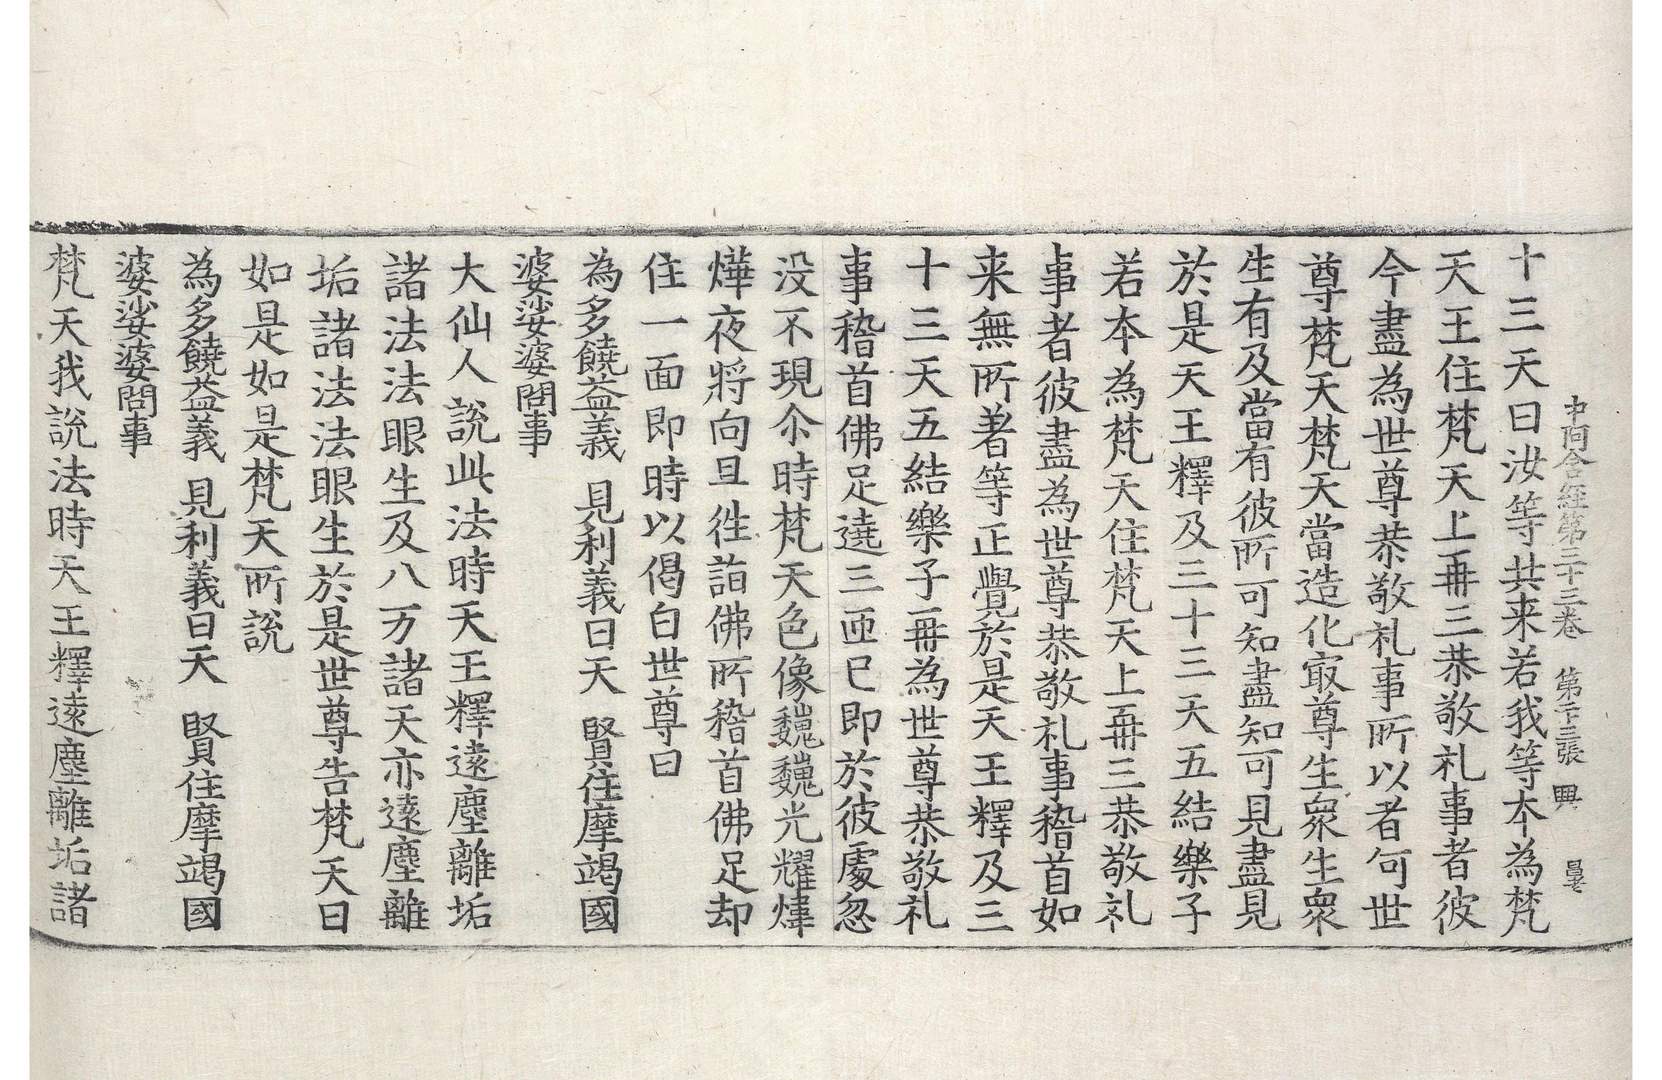 中阿含經第三十三卷 第二十三張 興
十三天曰汝等共来若我等本為梵
天王住梵天上再三恭敬礼事者彼
今盡為世尊恭敬礼事所以者何世
尊梵天梵天當造化冣尊生衆生衆
生有及當有彼所可知盡知可見盡見
於是天王釋及三十三天五結樂子
若本為梵天住梵天上再三恭敬礼
事者彼盡為世尊恭敬礼事稽首如
来無所著等正覺於是天王釋及三
十三天五結樂子再為世尊恭敬礼
事稽首佛足遶三匝已即於彼處忽
没不現尒時梵天色像巍巍光耀煒
燁夜將向旦往詣佛所稽首佛足却
住一面即時以偈白世尊曰
為多饒益義 見利義曰天 賢住摩竭國
婆娑婆問事
大仙人說此法時天王釋遠塵離垢
諸法法眼生及八万諸天亦遠塵離
垢諸法法眼生於是世尊告梵天曰
如是如是梵天所說
為多饒益義 見利義曰天 賢住摩竭國
婆娑婆問事
梵天我說法時天王釋遠塵離垢諸